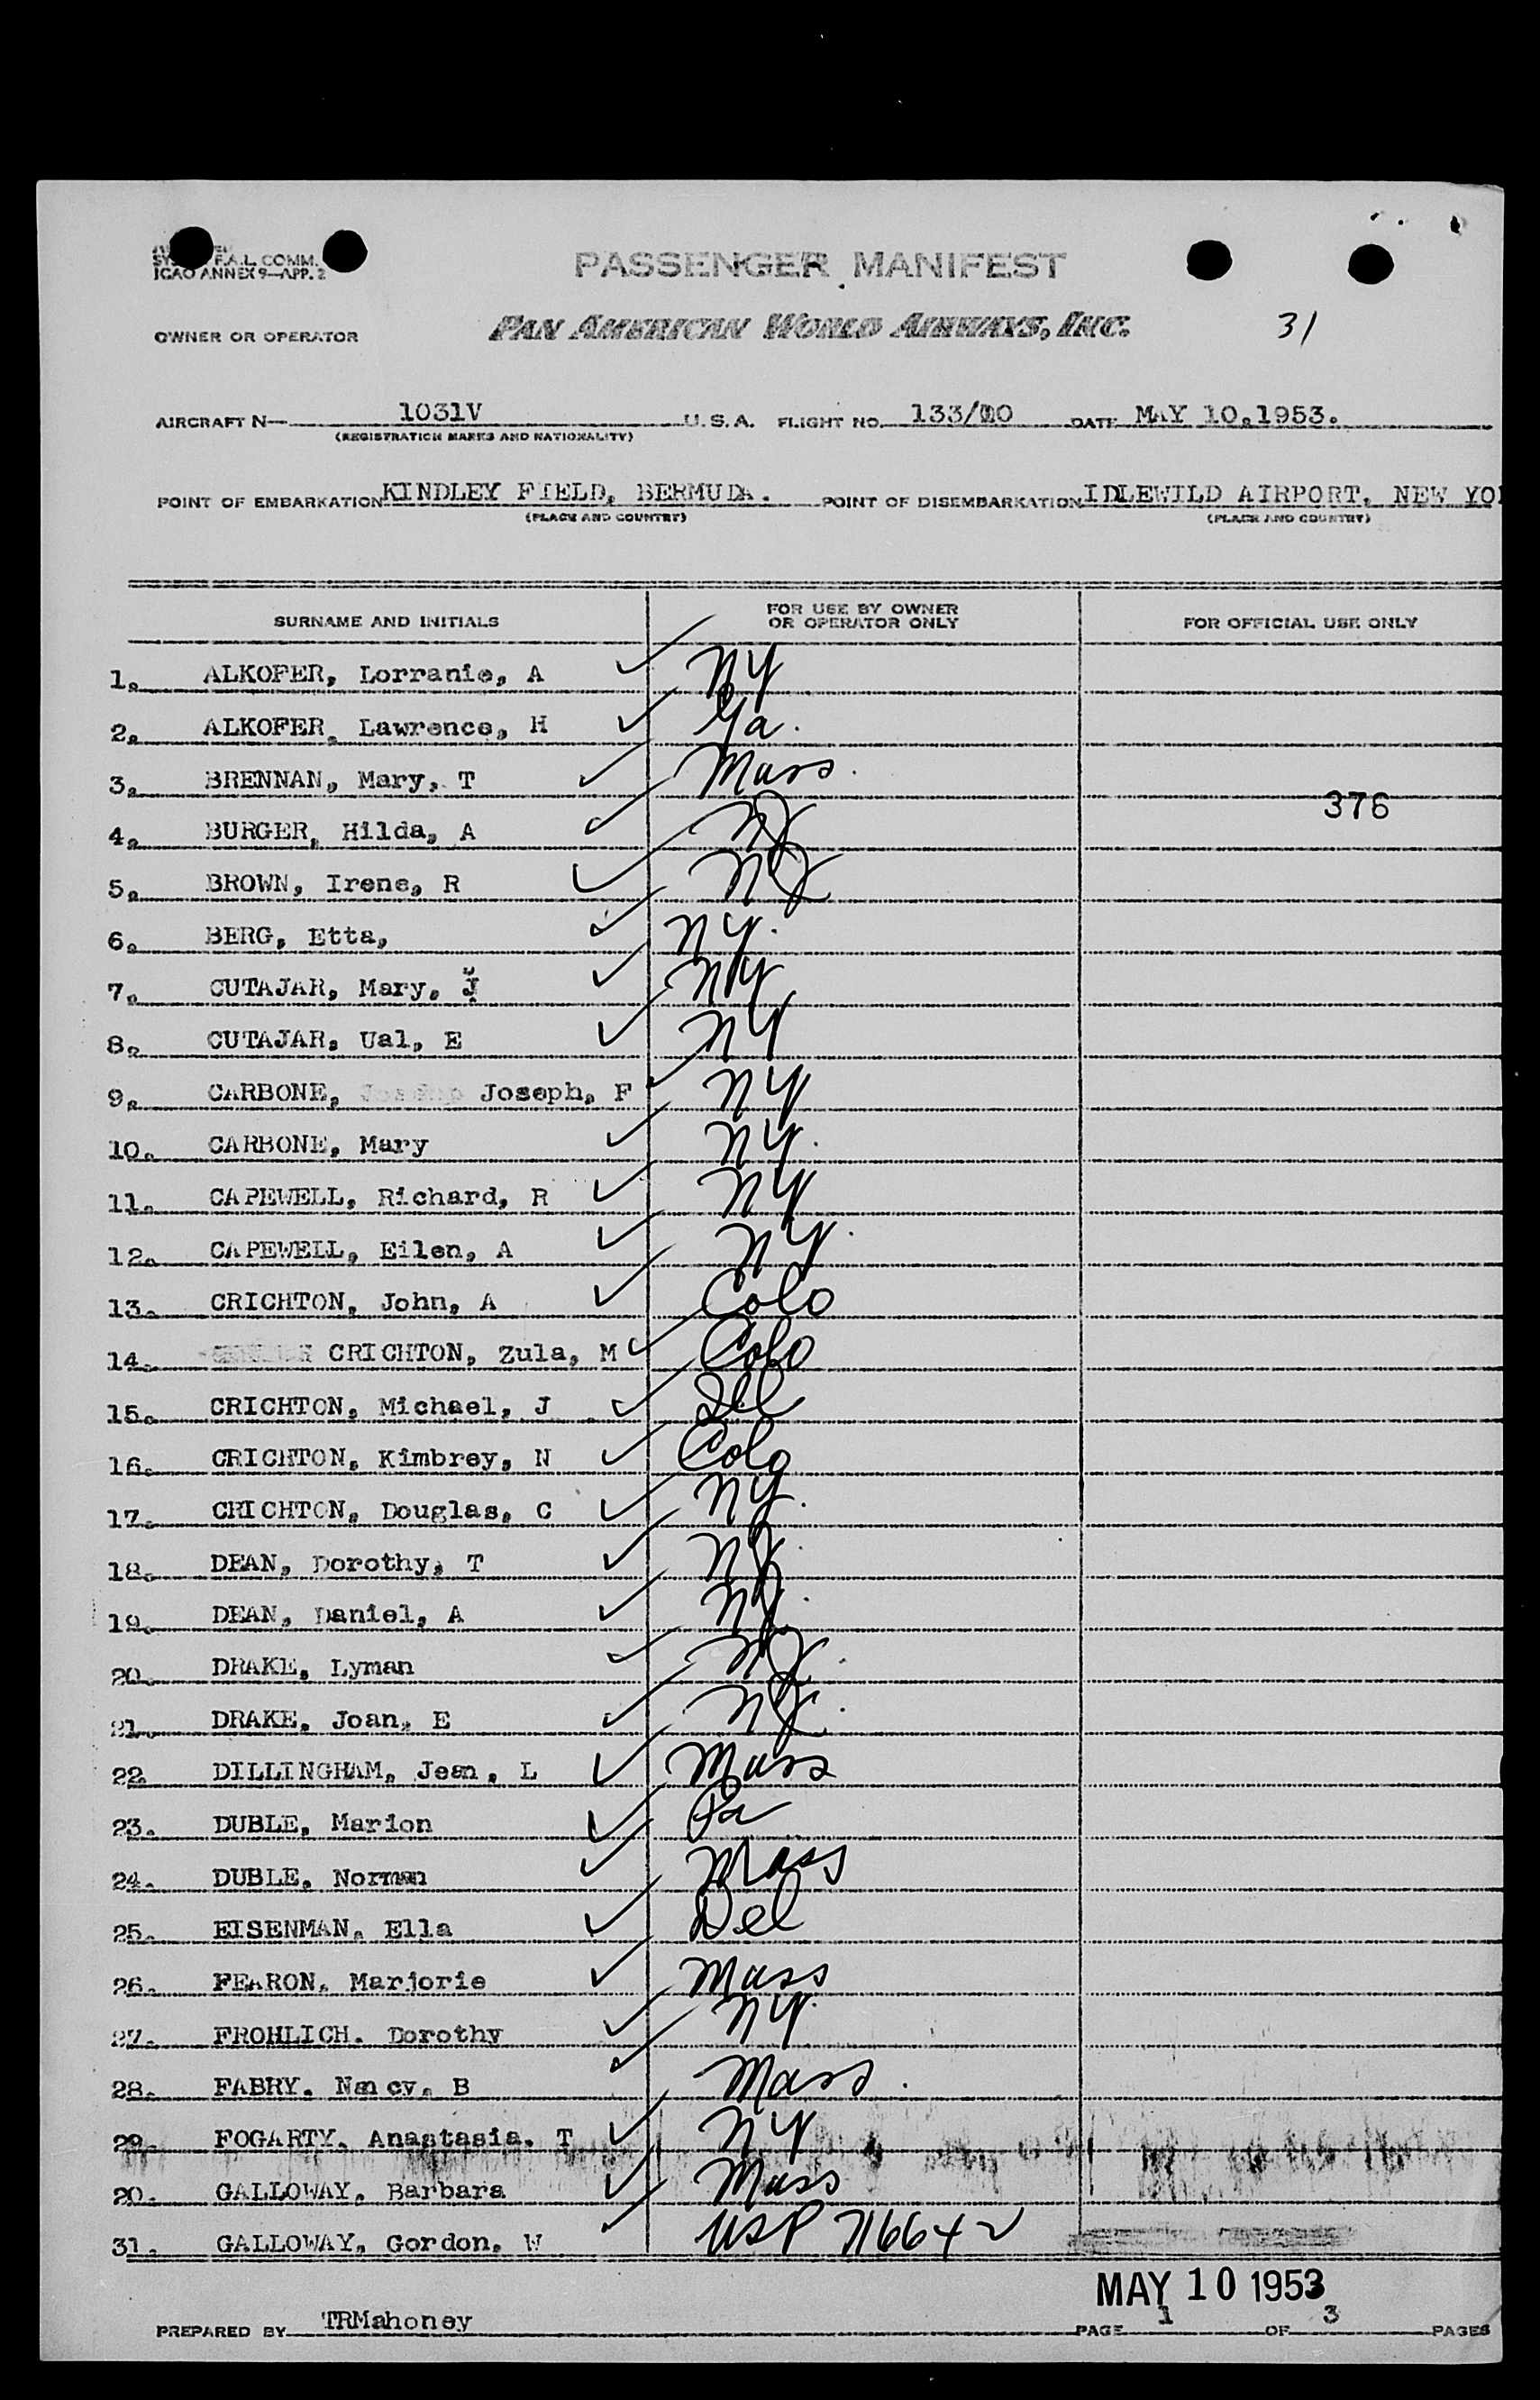 F.A.L. COMM.
ICAO ANNEX 9—APP. 2
PASSENGER MANIFEST
OWNER OR OPERATOR PAN AMERICAN WORLD AIRWAYS, INC. 31
AIRCRAFT N— 1031V U.S.A. FLIGHT NO. 133/10 DATE MAY 10,1953.
(REGISTRATION MARKS AND NATIONALITY)
POINT OF EMBARKATION KINDLEY FIELD, BERMUDA. POINT OF DISEMBARKATION IDLEWILD AIRPORT, NEW YO
(PLACE AND COUNTRY) (PLACE AND COUNTRY)
SURNAME AND INITIALS FOR USE BY OWNER OR OPERATOR ONLY FOR OFFICIAL USE ONLY
1. ALKOFER, Lorranie, A ✓ NY
2. ALKOFER, Lawrence, H ✓ Ga.
3. BRENNAN, Mary, T ✓ Mass.
376
4. BURGER, Hilda, A ✓ NJ
5. BROWN, Irene, R ✓ NJ
6. BERG, Etta, ✓ NY.
7. CUTAJAR, Mary, J ✓ NY
8. CUTAJAR, Ual, E ✓ NY
9. CARBONE, Joseph, F ✓ NY
10. CARBONE, Mary ✓ NY.
11. CAPEWELL, Richard, R ✓ NY
12. CAPEWELL, Eilen, A ✓ NY.
13. CRICHTON, John, A ✓ Colo
14. CRICHTON, Zula, M ✓ Colo
15. CRICHTON, Michael, J ✓ Ill
16. CRICHTON, Kimbrey, N ✓ Colo
17. CRICHTON, Douglas, C ✓ NY.
18. DEAN, Dorothy, T ✓ NJ.
19. DEAN, Daniel, A ✓ NJ.
20. DRAKE, Lyman ✓ NJ.
21. DRAKE, Joan, E ✓ NJ.
22. DILLINGHAM, Jean, L ✓ Mass
23. DUBLE, Marion ✓ Pa
24. DUBLE, Norman ✓ Mass
25. EISENMAN, Ella ✓ Del
26. FEARON, Marjorie ✓ Mass
27. FROHLICH. Dorothy ✓ NY.
28. FABRY. Nancy. B ✓ Mass.
29. FOGARTY. Anastasia. T ✓ NY
20. GALLOWAY, Barbara ✓ Mass
31. GALLOWAY, Gordon, W ✓ USP 71664 ✓
MAY 10 1953
PREPARED BY TRMahoney PAGE 1 OF 3 PAGES